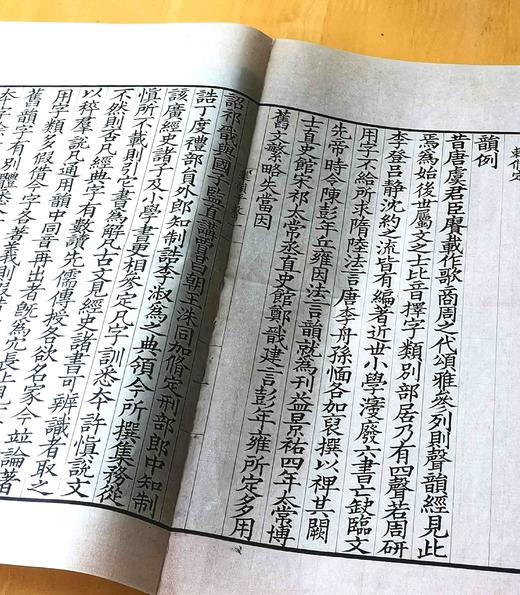 韻例
昔唐虞君臣賡載作歌商周之代頌雅參列則聲韻經見此
焉為始後世屬文之士比音擇字類別部居乃有四聲若周研
李登呂靜沈約之流皆有編著近世小學寖廢六書亡缺臨文
用字不給所求隋陸法言唐李舟孫愐各加裒撰以裨其闕
先帝時令陳彭年丘雍因法言韻就為刊益景祐四年太常博
士直史館宋祁太常丞直史館鄭戩建言彭年雍所定多用
舊文繁略失當因
詔祁戩與國子監直講賈昌朝王洙同加脩定刑部郎中知制
誥丁度禮部員外郎知制誥李淑為之典領今所撰集務從
該廣經史諸子及小學書更相參定凡字訓悉夲許慎說文
慎所不載則引它書為解凡古文見經史諸書可辨識者取之
不然則否凡經典字有數讀先儒傳授各欲名家今並論著
以稡羣說凡通用韻中同音再出者旣為冗長止見一
用字類多假借今字各著義則假
舊韻字有別體悉入
夲字餘